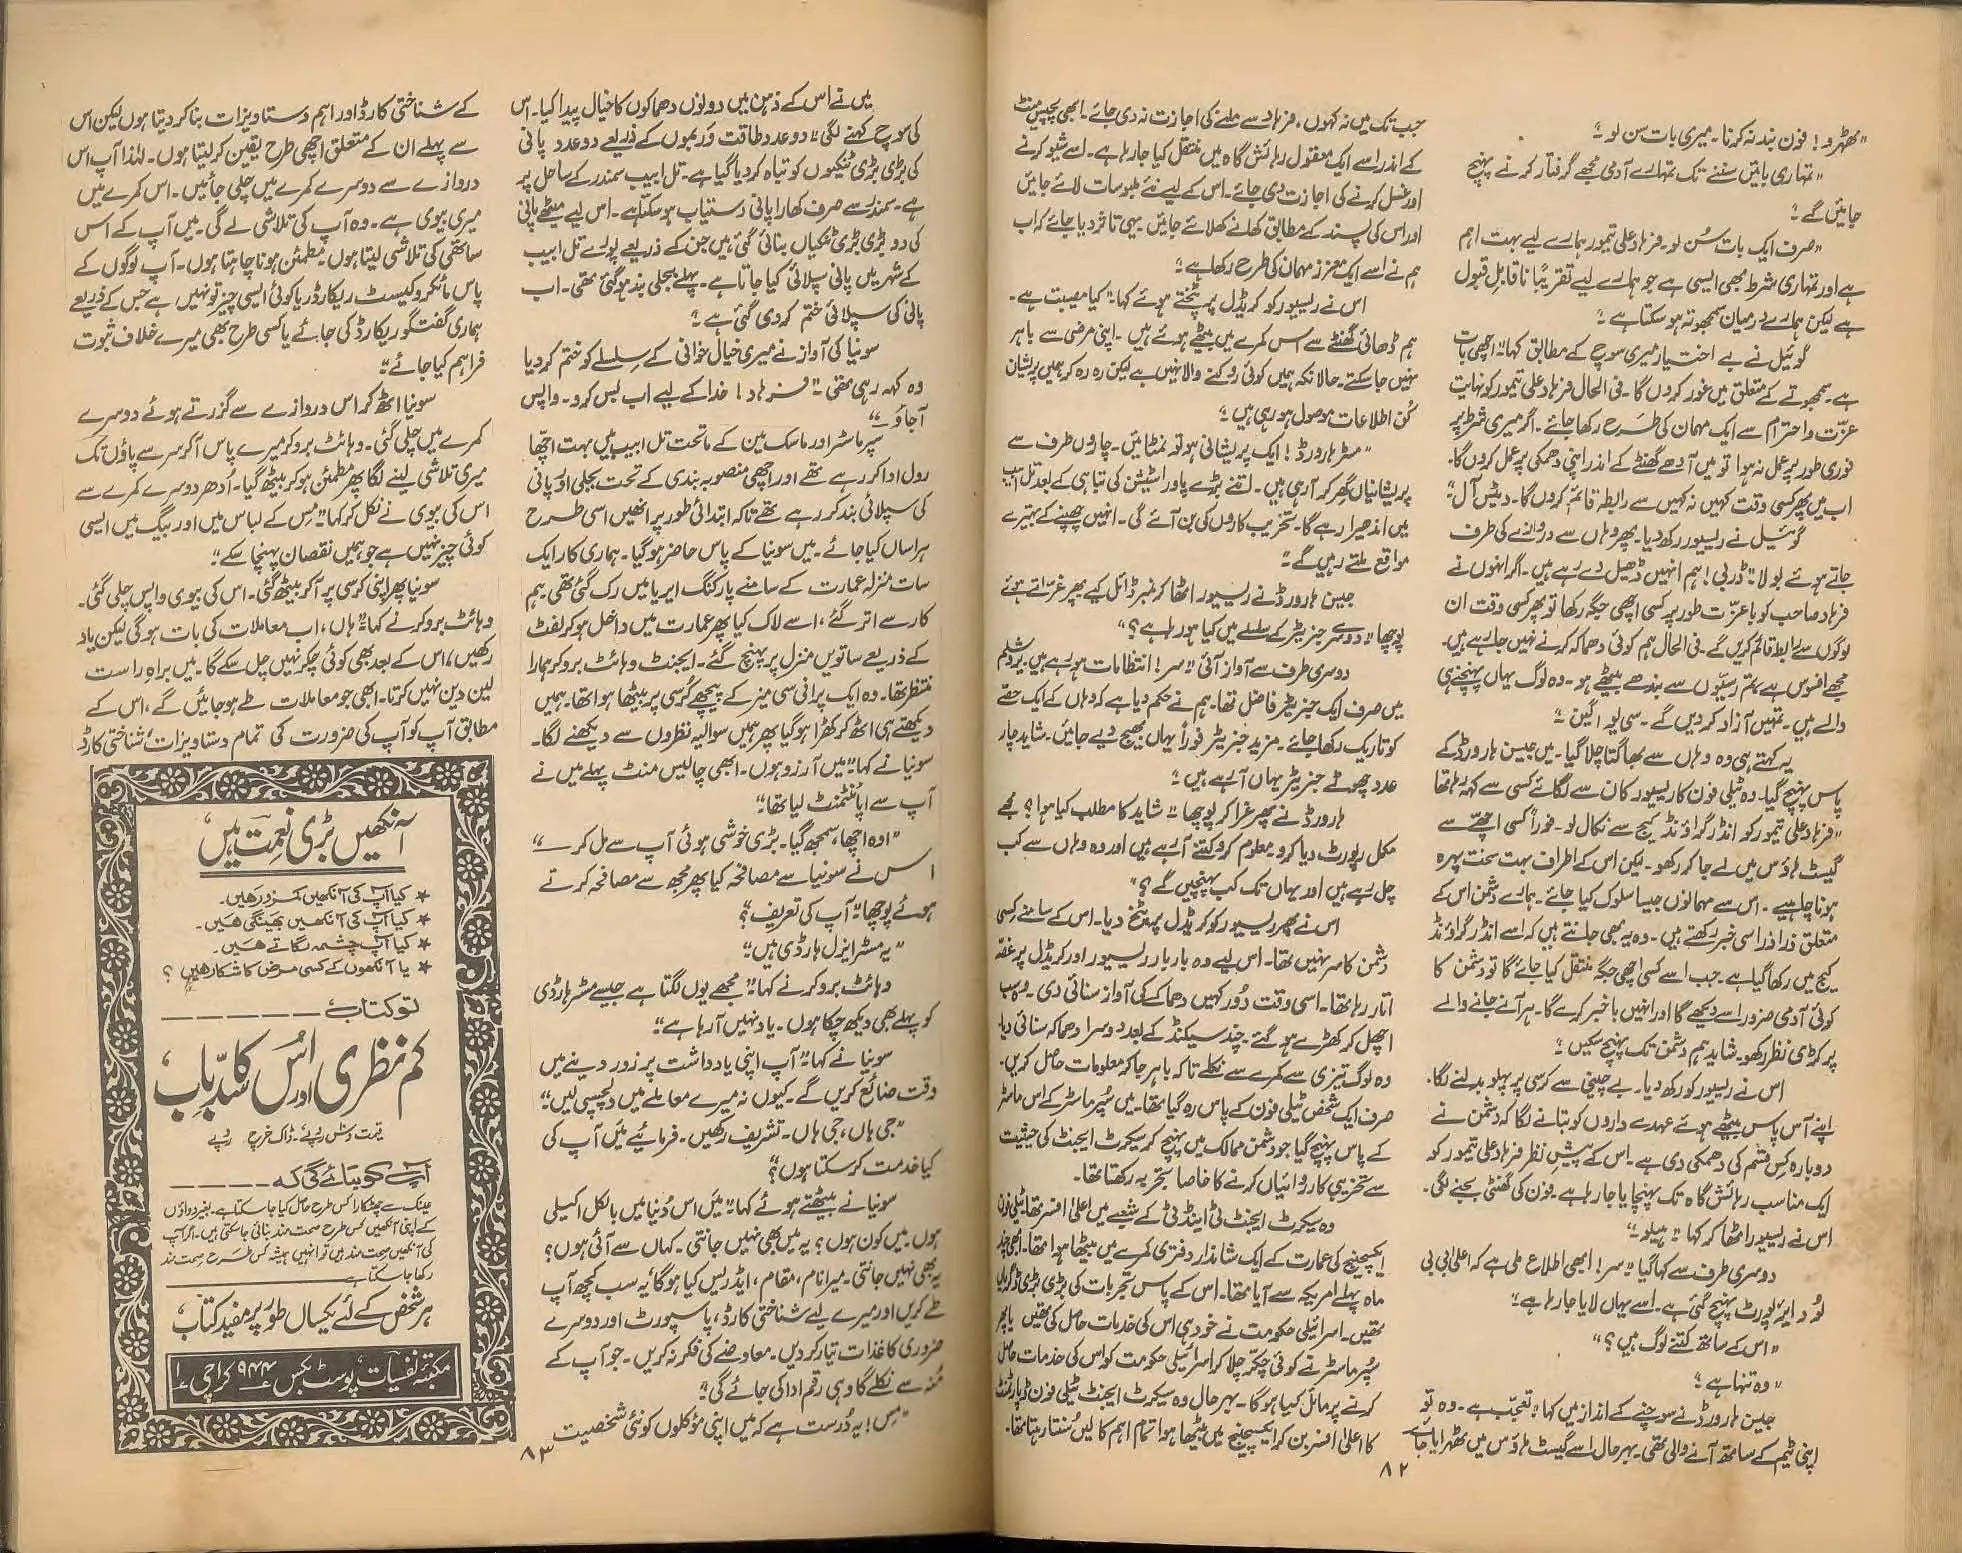 "ٹھہرو! فون بند نہ کرنا۔ میری بات سن لو۔"
"تمہاری باتیں سننے تک تمہارے آدمی مجھے گرفتار کرنے پہنچ
جائیں گے۔"
"صرف ایک بات سُن لو۔ فرہاد علی تیمور ہمارے لیے بہت اہم
ہے اور تمہاری شرط بھی ایسی ہے جو ہمارے لیے تقریباً ناقابلِ قبول
ہے لیکن ہمارے درمیان سمجھوتہ ہو سکتا ہے۔"
گوئیل نے بے اختیار میری سوچ کے مطابق کہا "اچھی بات
ہے۔ سمجھوتے کے متعلق میں غور کروں گا۔ فی الحال فرہاد علی تیمور کو نہایت
عزّت و احترام سے ایک مہمان کی طرح رکھا جائے۔ اگر میری شرط پر
فوری طور پر عمل نہ ہوا تو میں آدھے گھنٹے کے اندر اپنی دھمکی پر عمل کروں گا۔
اب میں پھر کسی وقت کہیں نہ کہیں سے رابطہ قائم کروں گا۔ دیٹس آل"
گوئیل نے ریسیور رکھ دیا۔ پھر وہاں سے دروازے کی طرف
جاتے ہوئے بولا "ڈربی! ہم انہیں ڈھیل دے رہے ہیں۔ اگر انہوں نے
فرہاد صاحب کو باعزّت طور پر کسی اچھی جگہ رکھا تو پھر کسی وقت ان
لوگوں سے رابطہ قائم کریں گے۔ فی الحال ہم کوئی دھماکہ کرنے نہیں جا رہے ہیں۔
مجھے افسوس ہے، تم رسیّوں سے بندھے بیٹھے ہو۔ وہ لوگ یہاں پہنچنے ہی
والے ہیں۔ تمہیں آزاد کر دیں گے۔ سی یو اگین"
یہ کہتے ہی وہ وہاں سے بھاگتا چلا گیا۔ میں جین ہارورڈ کے
پاس پہنچ گیا۔ وہ ٹیلی فون کا ریسیور کان سے لگائے کسی سے کہہ رہا تھا
"فرہاد علی تیمور کو انڈر گراؤنڈ کیج سے نکال لو۔ فوراً کسی اچھے سے
گیسٹ ہاؤس میں لے جا کر رکھو۔ لیکن اس کے اطراف بہت سخت پہرہ
ہونا چاہیے۔ اس سے مہمانوں جیسا سلوک کیا جائے۔ ہمارے دشمن اس کے
متعلق ذرا ذرا سی خبر رکھتے ہیں۔ وہ یہ بھی جانتے ہیں کہ اسے انڈر گراؤنڈ
کیج میں رکھا گیا ہے۔ جب اسے کسی اچھی جگہ منتقل کیا جائے گا تو دشمن کا
کوئی آدمی ضرور اسے دیکھے گا اور انہیں باخبر کرے گا۔ ہر آنے جانے والے
پر کڑی نظر رکھو۔ شاید ہم دشمن تک پہنچ سکیں۔"
اس نے ریسیور کو رکھ دیا۔ بے چینی سے کرسی پر پہلو بدلنے لگا۔
اپنے آس پاس بیٹھے ہوئے عہدے داروں کو بتانے لگا کہ دشمن نے
دوبارہ کس قسم کی دھمکی دی ہے۔ اس کے پیشِ نظر فرہاد علی تیمور کو
ایک مناسب رہائش گاہ تک پہنچایا جا رہا ہے۔ فون کی گھنٹی بجنے لگی۔
اس نے ریسیور اٹھا کر کہا "ہیلو"
دوسری طرف سے کہا گیا "سر! ابھی اطلاع ملی ہے کہ اعلیٰ بی بی
لُوڈ ایئرپورٹ پہنچ گئی ہے۔ اسے یہاں لایا جا رہا ہے۔"
"اس کے ساتھ کتنے لوگ ہیں؟"
"وہ تنہا ہے۔"
جین ہارورڈ نے سوچنے کے انداز میں کہا "تعجّب ہے۔ وہ تو
اپنی ٹیم کے ساتھ آنے والی تھی۔ بہرحال اسے گیسٹ ہاؤس میں ٹھہرایا جائے
جب تک میں نہ کہوں، فرہاد سے ملنے کی اجازت نہ دی جائے۔ ابھی پچیس منٹ
کے اندر اسے ایک معقول رہائش گاہ میں منتقل کیا جا رہا ہے۔ اسے شیو کرنے
اور غسل کرنے کی اجازت دی جائے۔ اس کے لیے نئے ملبوسات لائے جائیں
اور اس کی پسند کے مطابق کھانے کھلائے جائیں۔ یہی تاثر دیا جائے کہ اب
ہم نے اسے ایک معزز مہمان کی طرح رکھا ہے۔"
اس نے ریسیور کو کریڈل پر پٹختے ہوئے کہا "کیا مصیبت ہے۔
ہم ڈھائی گھنٹے سے اس کمرے میں بیٹھے ہوئے ہیں۔ اپنی مرضی سے باہر
نہیں جا سکتے۔ حالانکہ ہمیں کوئی روکنے والا نہیں ہے لیکن رہ رہ کر ہمیں پریشان
کُن اطلاعات موصول ہو رہی ہیں۔"
"مسٹر ہارورڈ! ایک پریشانی ہو تو نمٹائیں۔ چاروں طرف سے
پریشانیاں گھر کر آ رہی ہیں۔ اتنے بڑے پاور اسٹیشن کی تباہی کے بعد تل ابیب
میں اندھیرا رہے گا۔ تخریب کاروں کی بن آئے گی۔ انہیں چھپنے کے بہتیرے
مواقع ملتے رہیں گے۔"
جین ہارورڈ نے ریسیور اٹھا کر نمبر ڈائل کیے پھر غرّاتے ہوئے
پوچھا "دوسرے جنریٹر کے سلسلے میں کیا ہو رہا ہے؟"
دوسری طرف سے آواز آئی "سر! انتظامات ہو رہے ہیں۔ یروشلم
میں صرف ایک جنریٹر فاضل تھا۔ ہم نے حکم دیا ہے کہ وہاں کے ایک حصے
کو تاریک رکھا جائے۔ مزید جنریٹر فوراً یہاں بھیج دیے جائیں۔ شاید چار
عدد چھوٹے جنریٹر یہاں آ رہے ہیں۔"
ہارورڈ نے پھر غرا کر پوچھا "شاید کا مطلب کیا ہوا؟ مجھے
مکمل رپورٹ دیا کرو۔ معلوم کرو کتنے آ رہے ہیں اور وہ وہاں سے کب
چل رہے ہیں اور یہاں تک کب پہنچیں گے؟"
اس نے پھر ریسیور کو کریڈل پر پٹخ دیا۔ اس کے سامنے کسی
دشمن کا سر نہیں تھا۔ اس لیے وہ بار بار ریسیور اور کریڈل پر غصّہ
اتار رہا تھا۔ اسی وقت دُور کہیں دھماکے کی آواز سنائی دی۔ وہ سب
اچھل کر کھڑے ہو گئے۔ چند سیکنڈ کے بعد دوسرا دھماکہ سنائی دیا۔
وہ لوگ تیزی سے کمرے سے نکلے تاکہ باہر جا کر معلومات حاصل کریں۔
صرف ایک شخص ٹیلی فون کے پاس رہ گیا تھا۔ میں سُپر ماسٹر کے اس ماسٹر
کے پاس پہنچ گیا جو دشمن ممالک میں پہنچ کر سیکرٹ ایجنٹ کی حیثیت
سے تخریبی کارروائیاں کرنے کا خاصا تجربہ رکھتا تھا۔
وہ سیکرٹ ایجنٹ ٹی اینڈ ٹی کے شعبے میں اعلیٰ افسر تھا۔ ٹیلی فون
ایکسچینج کی عمارت کے ایک شاندار دفتری کمرے میں بیٹھا ہوا تھا۔ ابھی چند
ماہ پہلے امریکہ سے آیا تھا۔ اس کے پاس تجربات کی بڑی بڑی ڈگریاں
تھیں۔ اسرائیلی حکومت نے خود ہی اس کی خدمات حاصل کی تھیں یا پھر
سُپر ماسٹر نے کوئی چکّر چلا کر اسرائیلی حکومت کو اس کی خدمات حاصل
کرنے پر مائل کیا ہوگا۔ بہرحال وہ سیکرٹ ایجنٹ ٹیلی فون ڈپارٹمنٹ
کا اعلیٰ افسر بن کر ایکسچینج میں بیٹھا ہوا تمام اہم کالیں سُنتا رہتا تھا۔
۸۲
میں نے اس کے ذہن میں دونوں دھماکوں کا خیال پیدا کیا۔ اس
کی سوچ کہنے لگی "دو عدد طاقت ور بموں کے ذریعے دو عدد پانی
کی بڑی بڑی ٹنکیوں کو تباہ کر دیا گیا ہے۔ تل ابیب سمندر کے ساحل پر
ہے۔ سمندر سے صرف کھارا پانی دستیاب ہو سکتا ہے۔ اس لیے میٹھے پانی
کی دو بڑی بڑی ٹنکیاں بنائی گئی ہیں جن کے ذریعے پورے تل ابیب
کے شہر میں پانی سپلائی کیا جاتا ہے۔ پہلے بجلی بند ہو گئی تھی۔ اب
پانی کی سپلائی ختم کر دی گئی ہے۔"
سونیا کی آواز نے میری خیال خوانی کے سلسلے کو ختم کر دیا
وہ کہہ رہی تھی۔ "فرہاد! خدا کے لیے اب بس کرو۔ واپس
آ جاؤ۔"
سپر ماسٹر اور ماسک مین کے ماتحت تل ابیب میں بہت اچھا
رول ادا کر رہے تھے اور اچھی منصوبہ بندی کے تحت بجلی اور پانی
کی سپلائی بند کر رہے تھے تاکہ ابتدائی طور پر انھیں اسی طرح
ہراساں کیا جائے۔ میں سونیا کے پاس حاضر ہو گیا۔ ہماری کار ایک
سات منزلہ عمارت کے سامنے پارکنگ ایریا میں رک گئی تھی۔ ہم
کار سے اتر گئے، اسے لاک کیا پھر عمارت میں داخل ہو کر لفٹ
کے ذریعے ساتویں منزل پر پہنچ گئے۔ ایجنٹ وہائٹ بروکر ہمارا
منتظر تھا۔ وہ ایک پرانی سی میز کے پیچھے کرسی پر بیٹھا ہوا تھا۔ ہمیں
دیکھتے ہی اٹھ کر کھڑا ہو گیا پھر ہمیں سوالیہ نظروں سے دیکھنے لگا۔
سونیا نے کہا "میں آرزو ہوں۔ ابھی چالیس منٹ پہلے میں نے
آپ سے اپائنٹمنٹ لیا تھا"
"اوہ اچھا، سمجھ گیا۔ بڑی خوشی ہوئی آپ سے مل کر ـــ"
اس نے سونیا سے مصافحہ کیا پھر مجھ سے مصافحہ کرتے
ہوئے پوچھا "آپ کی تعریف؟"
"یہ مسٹر ایزل ہارڈی ہیں"
وہائٹ بروکر نے کہا "مجھے یوں لگتا ہے جیسے مسٹر ہارڈی
کو پہلے بھی دیکھ چکا ہوں۔ یاد نہیں آ رہا ہے"
سونیا نے کہا "آپ اپنی یادداشت پر زور دینے میں
وقت ضائع کریں گے۔ کیوں نہ میرے معاملے میں دلچسپی لیں"
"جی ہاں، جی ہاں۔ تشریف رکھیں۔ فرمائیے میں آپ کی
کیا خدمت کر سکتا ہوں؟"
سونیا نے بیٹھتے ہوئے کہا "میں اس دُنیا میں بالکل اکیلی
ہوں۔ میں کون ہوں؟ یہ میں بھی نہیں جانتی۔ کہاں سے آئی ہوں؟
یہ بھی نہیں جانتی۔ میرا نام، مقام، ایڈریس کیا ہوگا یہ سب کچھ آپ
طے کریں اور میرے لیے شناختی کارڈ، پاسپورٹ اور دوسرے
ضروری کاغذات تیار کر دیں۔ معاوضے کی فکر نہ کریں۔ جو آپ کے
مُنہ سے نکلے گا وہی رقم ادا کی جائے گی"
"مِس! یہ دُرست ہے کہ میں اپنی مؤکلوں کو نئی شخصیت
۸۳
کے شناختی کارڈ اور اہم دستاویزات بنا کر دیتا ہوں لیکن اس
سے پہلے ان کے متعلق اچھی طرح یقین کر لیتا ہوں۔ لہٰذا آپ اس
دروازے سے دوسرے کمرے میں چلی جائیں۔ اس کمرے میں
میری بیوی ہے۔ وہ آپ کی تلاشی لے گی۔ میں آپ کے اس
ساتھی کی تلاشی لیتا ہوں۔ مطمئن ہونا چاہتا ہوں۔ آپ لوگوں کے
پاس مائکرو کیسٹ ریکارڈر یا کوئی ایسی چیز تو نہیں ہے جس کے ذریعے
ہماری گفتگو ریکارڈ کی جائے یا کسی طرح بھی میرے خلاف ثبوت
فراہم کیا جائے"
سونیا اٹھ کر اس دروازے سے گزرتے ہوئے دوسرے
کمرے میں چلی گئی۔ وہائٹ بروکر میرے پاس آ کر سر سے پاؤں تک
میری تلاشی لینے لگا پھر مطمئن ہو کر بیٹھ گیا۔ اُدھر دوسرے کمرے سے
اس کی بیوی نے نکل کر کہا "مِس کے لباس میں اور بیگ میں ایسی
کوئی چیز نہیں ہے جو ہمیں نقصان پہنچا سکے"
سونیا پھر اپنی کرسی پر آ کر بیٹھ گئی۔ اس کی بیوی واپس چلی گئی۔
وہائٹ بروکر نے کہا "ہاں، اب معاملات کی بات ہوگی لیکن یاد
رکھیں، اس کے بعد بھی کوئی چکر نہیں چل سکے گا۔ میں براہِ راست
لین دین نہیں کرتا۔ ابھی جو معاملات طے ہو جائیں گے، اس کے
مطابق آپ کو آپ کی ضرورت کی تمام دستاویزات، شناختی کارڈ
آنکھیں بڑی نعمت ہیں،
★ کیا آپ کی آنکھیں کمزور ہیں۔
★ کیا آپ کی آنکھیں بھینگی ہیں۔
★ کیا آپ چشمہ لگاتے ہیں۔
★ یا آنکھوں کے کسی مرض کا شکار ہیں؟
تو کتاب ــــــــــــ
کم نظری اور اُس کا سدِّباب،
قیمت دس روپے۔ ڈاک خرچ روپے
آپ کو بتائے گی کہ ــــــــــ
عینک سے چھٹکارا کس طرح حاصل کیا جا سکتا ہے۔ بغیر دواؤں
کے اپنی آنکھیں کس طرح صحت مند بنائی جا سکتی ہیں۔ اگر آپ
کی آنکھیں صحت مند ہیں تو انہیں ہمیشہ کس طرح صحت مند
رکھا جا سکتا ہے ــــــــــ
ہر شخص کے لئے یکساں طور پر مفید کتاب،
مکتبۂ نفسیات، پوسٹ بکس ۹۴۴ کراچی ۱